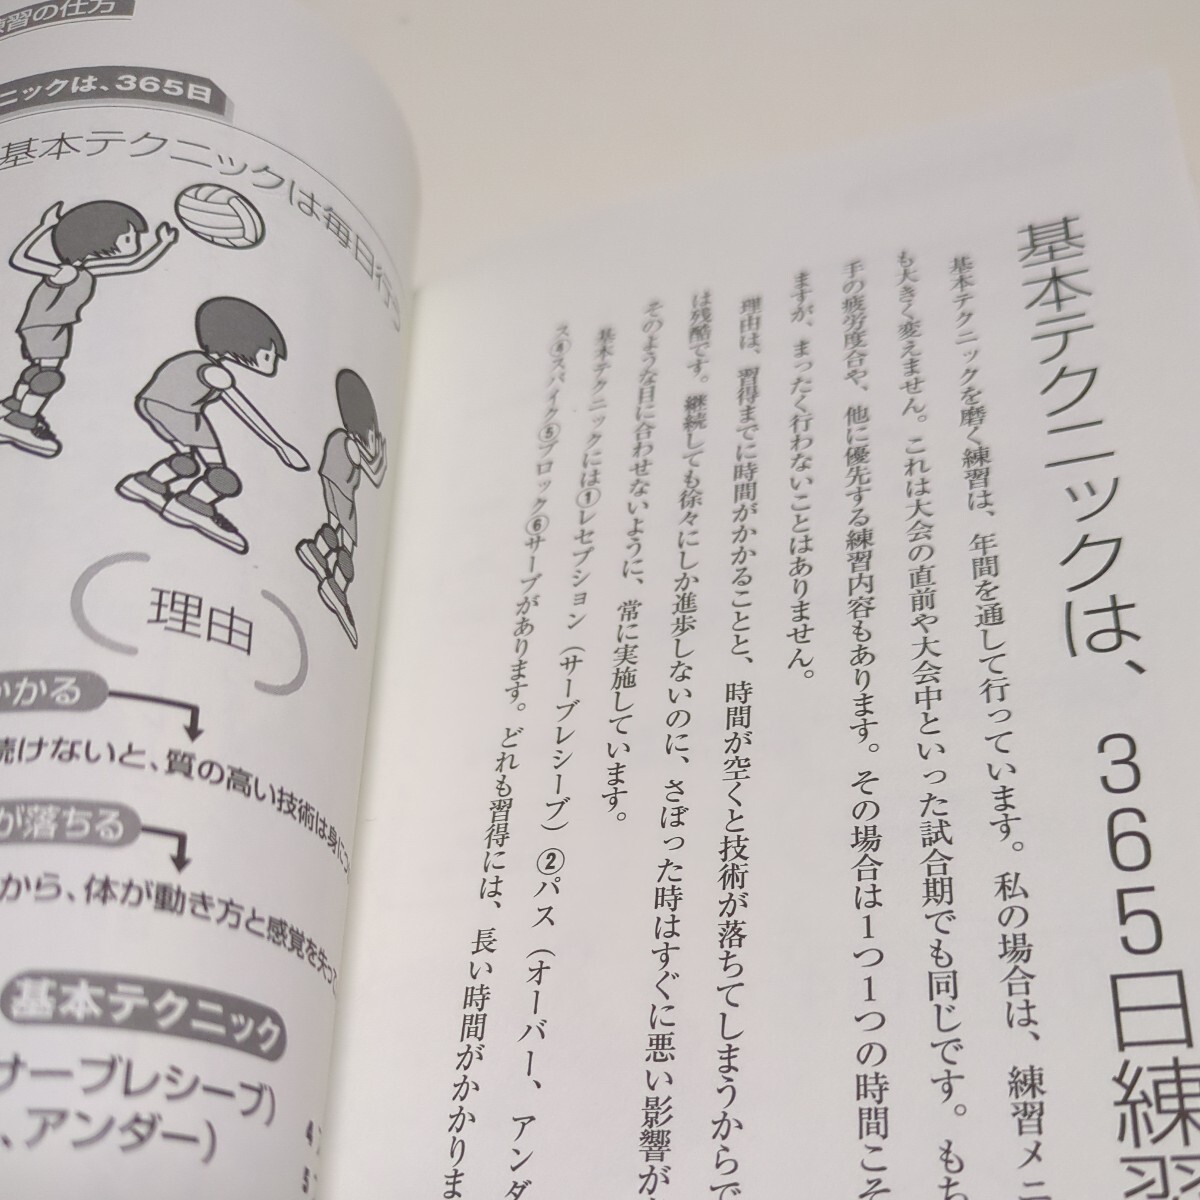 練習の仕方
ニックは、365日
基本テクニックは毎日行う
理由
かかる
続けないと、質の高い技術は身につ
が落ちる
から、体が動き方と感覚を失って
基本テクニック
サーブレシーブ)
、アンダー)
4
5
基本テクニックは、365日練習
基本テクニックを磨く練習は、年間を通して行っています。私の場合は、練習メニ
も大きく変えません。これは大会の直前や大会中といった試合期でも同じです。もち
手の疲労度合や、他に優先する練習内容もあります。その場合は1つ1つの時間こそ
ますが、まったく行わないことはありません。
理由は、習得までに時間がかかることと、時間が空くと技術が落ちてしまうからで
は残酷です。継続しても徐々にしか進歩しないのに、さぼった時はすぐに悪い影響が
そのような目に合わせないように、常に実施しています。
基本テクニックには①レセプション(サーブレシーブ)②パス(オーバー、アンダ
ス④スパイク⑤ブロック⑥サーブがあります。どれも習得には、長い時間がかかりま